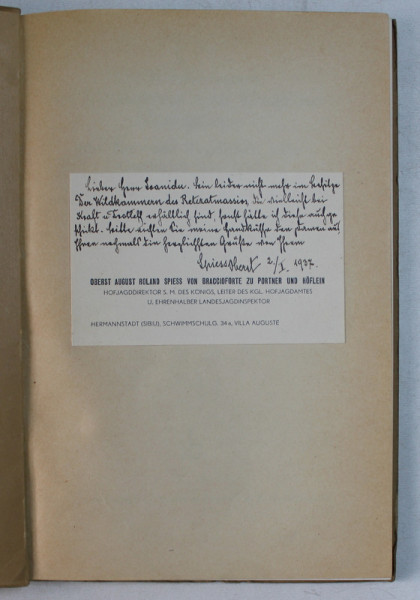 Lieber Herr Ioanidu. Bin leider nicht mehr im Besitze
"Der Wildkammern des Retezatmassivs, die vielleicht bei
Kraft u Drotleff erhältlich sind, sonst hätte ich diese auch ge
schickt. Bitte richten Sie meine Handküsse den Damen aus
Ihnen nochmals die herzlichsten Grüße von Ihrem
Spiess Oberst 2/I. 1937.
OBERST AUGUST ROLAND SPIESS VON BRACCIOFORTE ZU PORTNER UND HÖFLEIN
HOFJAGDDIREKTOR S. M. DES KÖNIGS, LEITER DES KGL. HOFJAGDAMTES
U. EHRENHALBER LANDESJAGDINSPEKTOR
HERMANNSTADT (SIBIU), SCHWIMMSCHULG. 34a, VILLA AUGUSTE